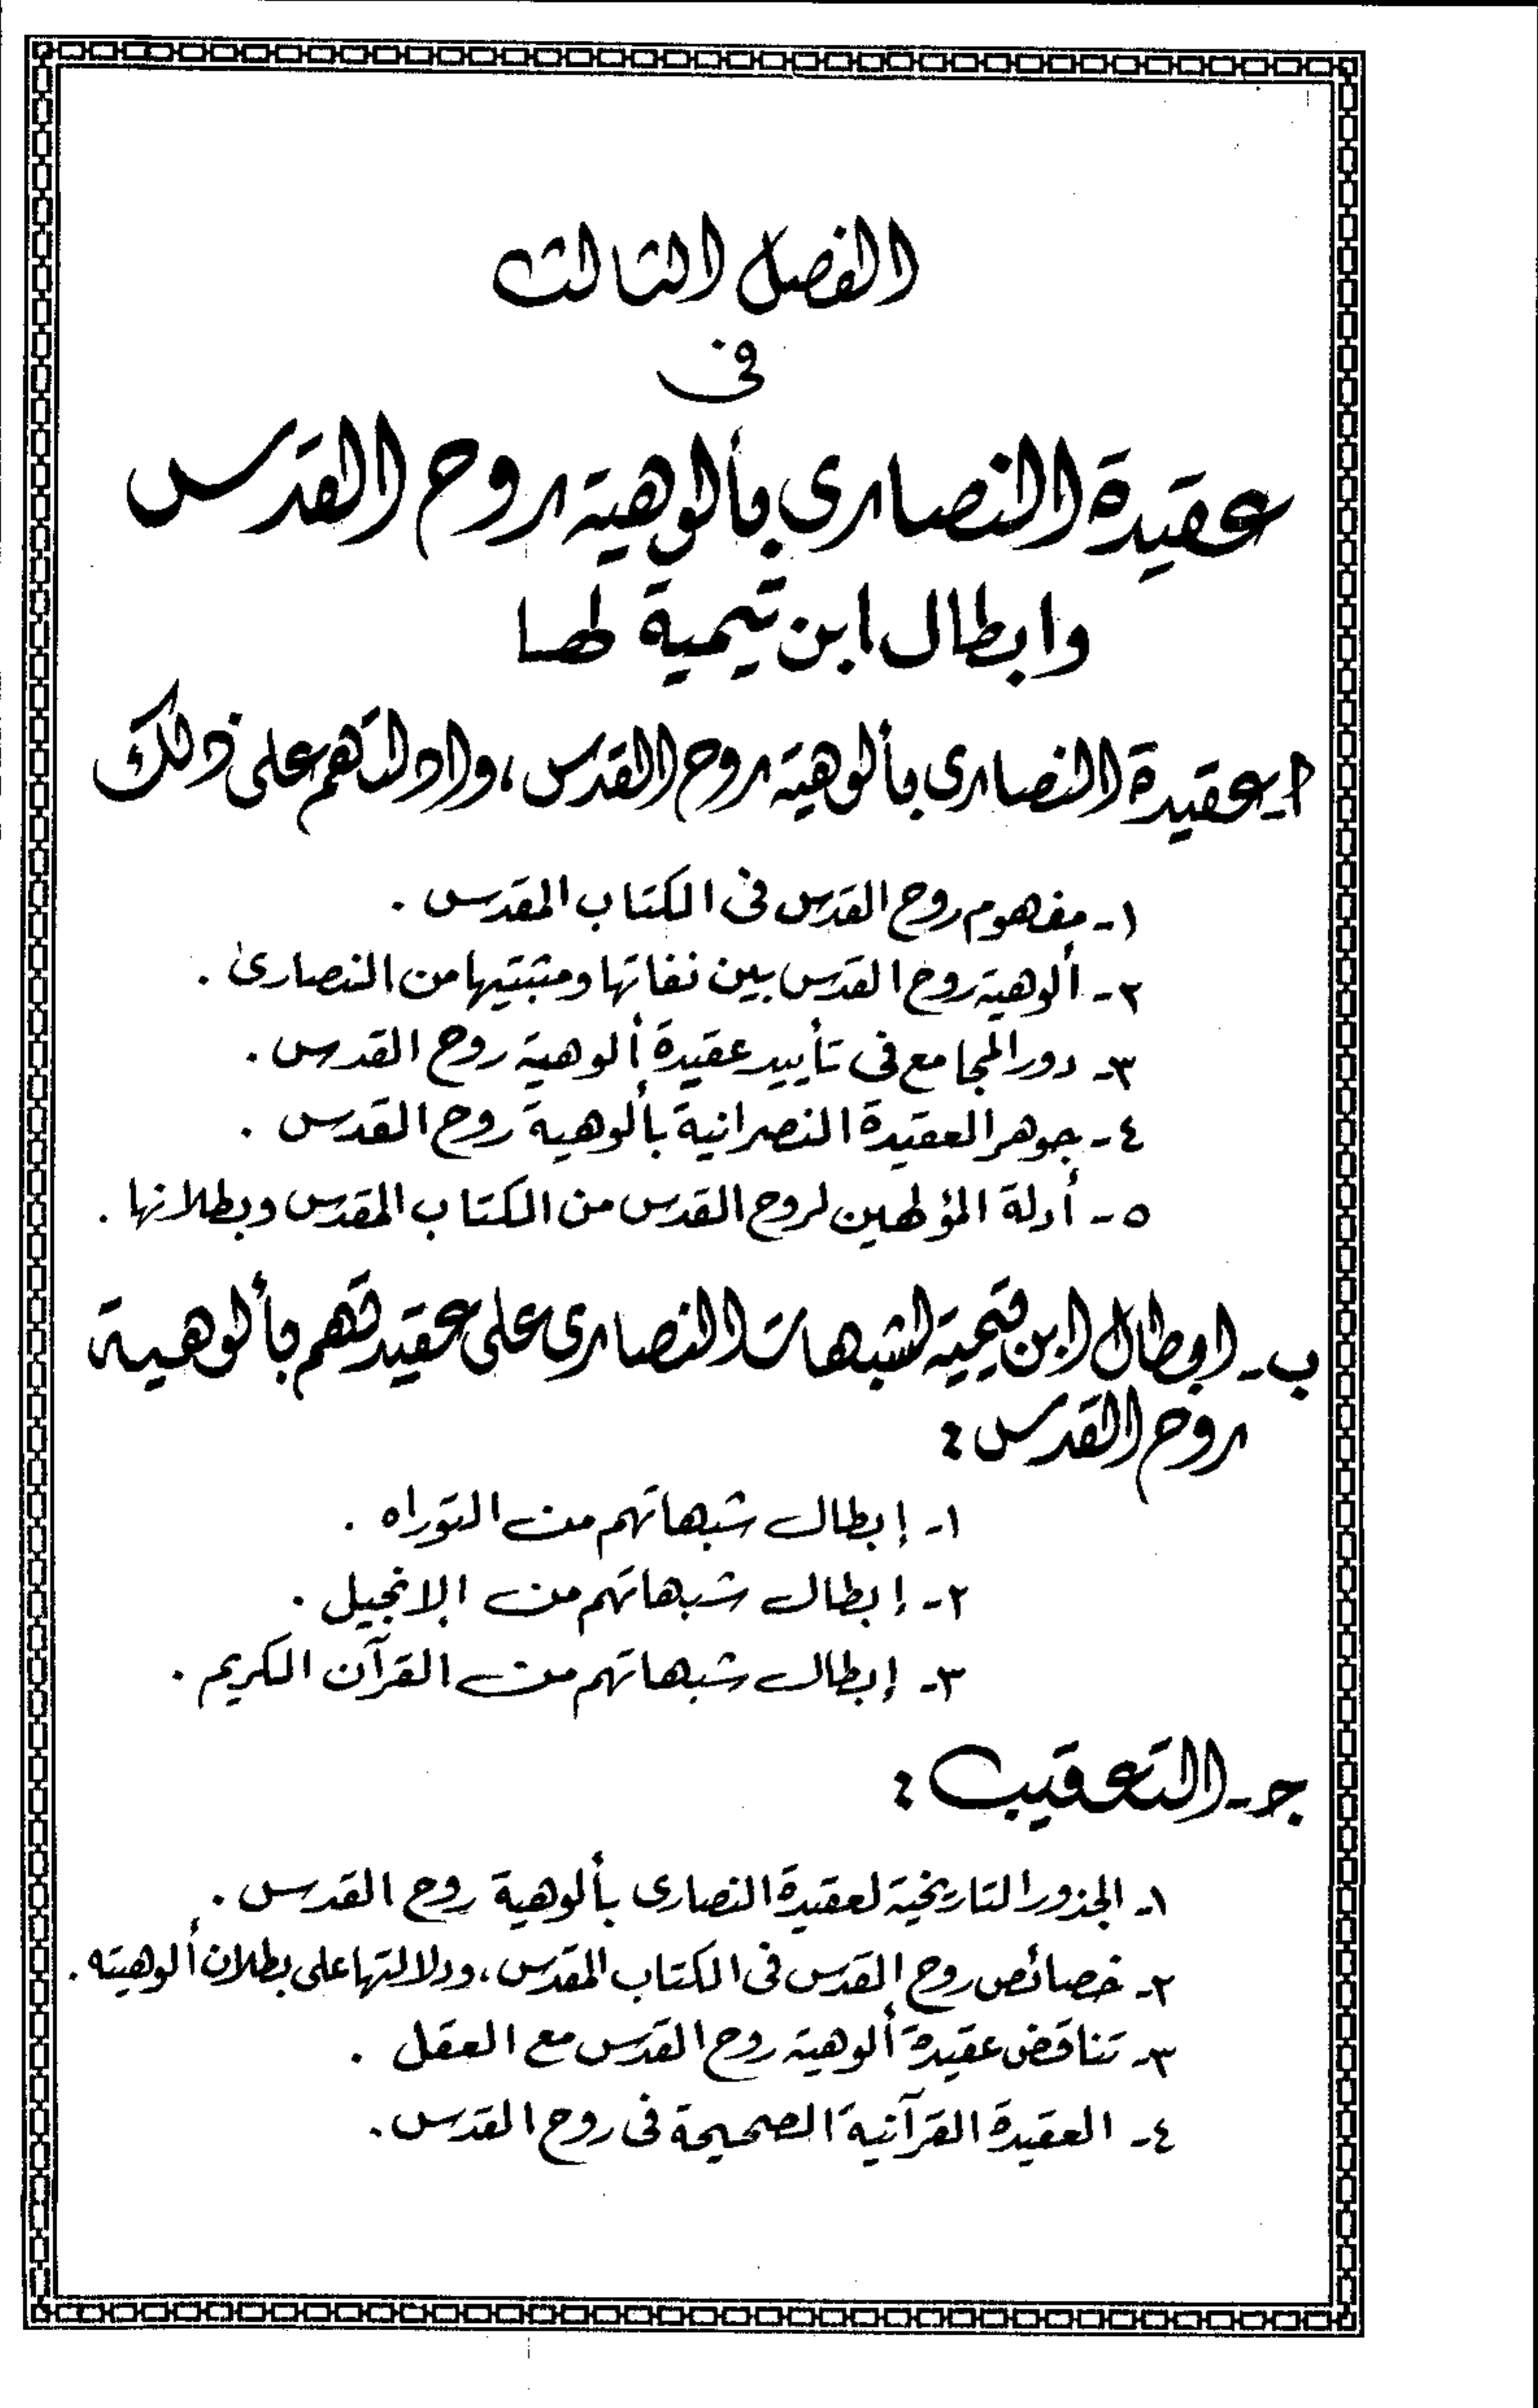 الفصل الثالث
فى
عقيدة النصارى بألوهية روح القدس
وابطال ابن تيمية لها
ا - عقيدة النصارى بألوهية روح القدس، وادلتهم على ذلك
١- مفهوم روح القدس فى الكتاب المقدس .
٢- ألوهية روح القدس بين نفاتها ومثبتيها من النصارى .
٣- دور المجامع فى تأييد عقيدة ألوهية روح القدس .
٤- جوهر العقيدة النصرانية بألوهية روح القدس .
٥- أدلة المؤلهين لروح القدس من الكتاب المقدس وبطلانها .
ب - ابطال ابن تيمية لشبهات النصارى على عقيدتهم بألوهية
روح القدس :
١- إبطال شبهاتهم من التوراه .
٢- إبطال شبهاتهم من الإنجيل .
٣- إبطال شبهاتهم من القرآن الكريم .
ج - التعقيب :
١- الجذور التاريخية لعقيدة النصارى بألوهية روح القدس .
٢- خصائص روح القدس فى الكتاب المقدس، ودلالتها على بطلان ألوهيته .
٣- تناقض عقيدة ألوهية روح القدس مع العقل .
٤- العقيدة القرآنية الصحيحة فى روح القدس .